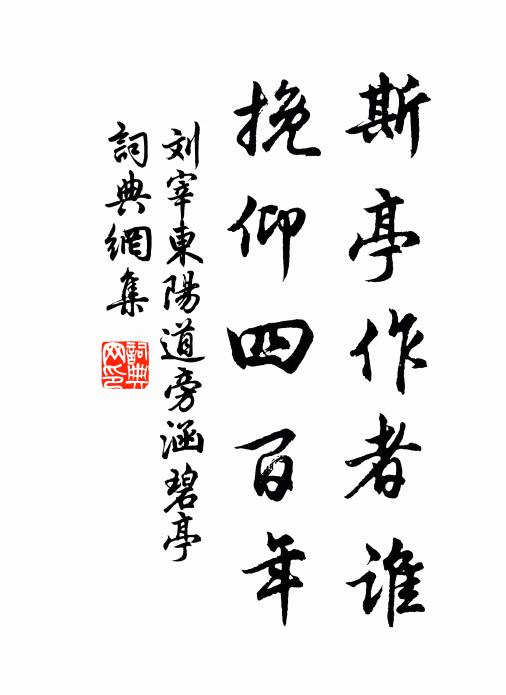 斯亭作者谁
挽仰四百年
刘宰東陽道旁涵碧亭
詞典網集
詞典网印